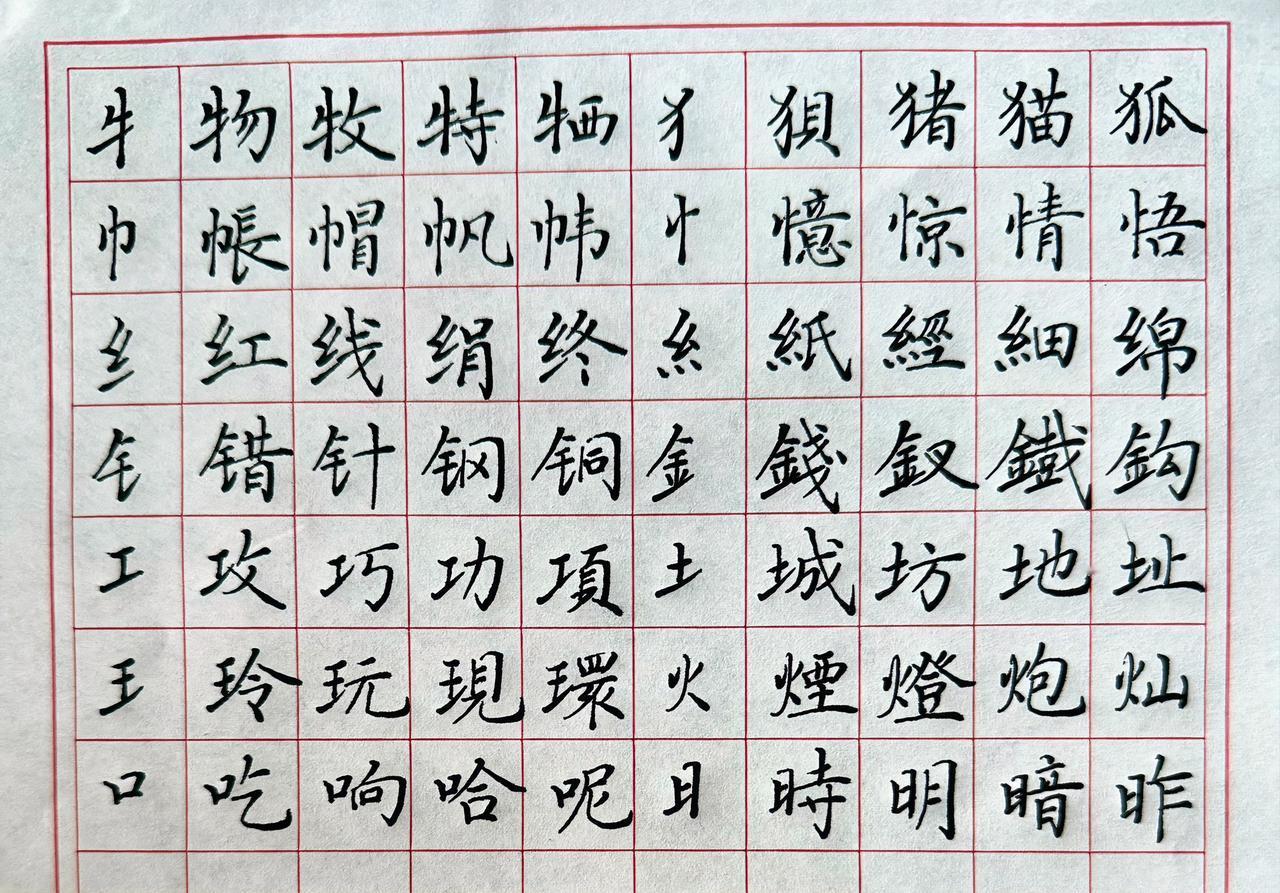 牜 物 牧 特 牺 犭 狽 猪 猫 狐
巾 帳 帽 帆 帏 忄 憶 惊 情 悟
纟 红 线 绢 终 糹 紙 經 細 绵
钅 错 针 钢 铜 釒 錢 釵 鐵 鈎
工 攻 巧 功 項 土 城 坊 地 址
王 玲 玩 現 環 火 煙 燈 炮 灿
口 吃 响 哈 呢 日 時 明 暗 昨